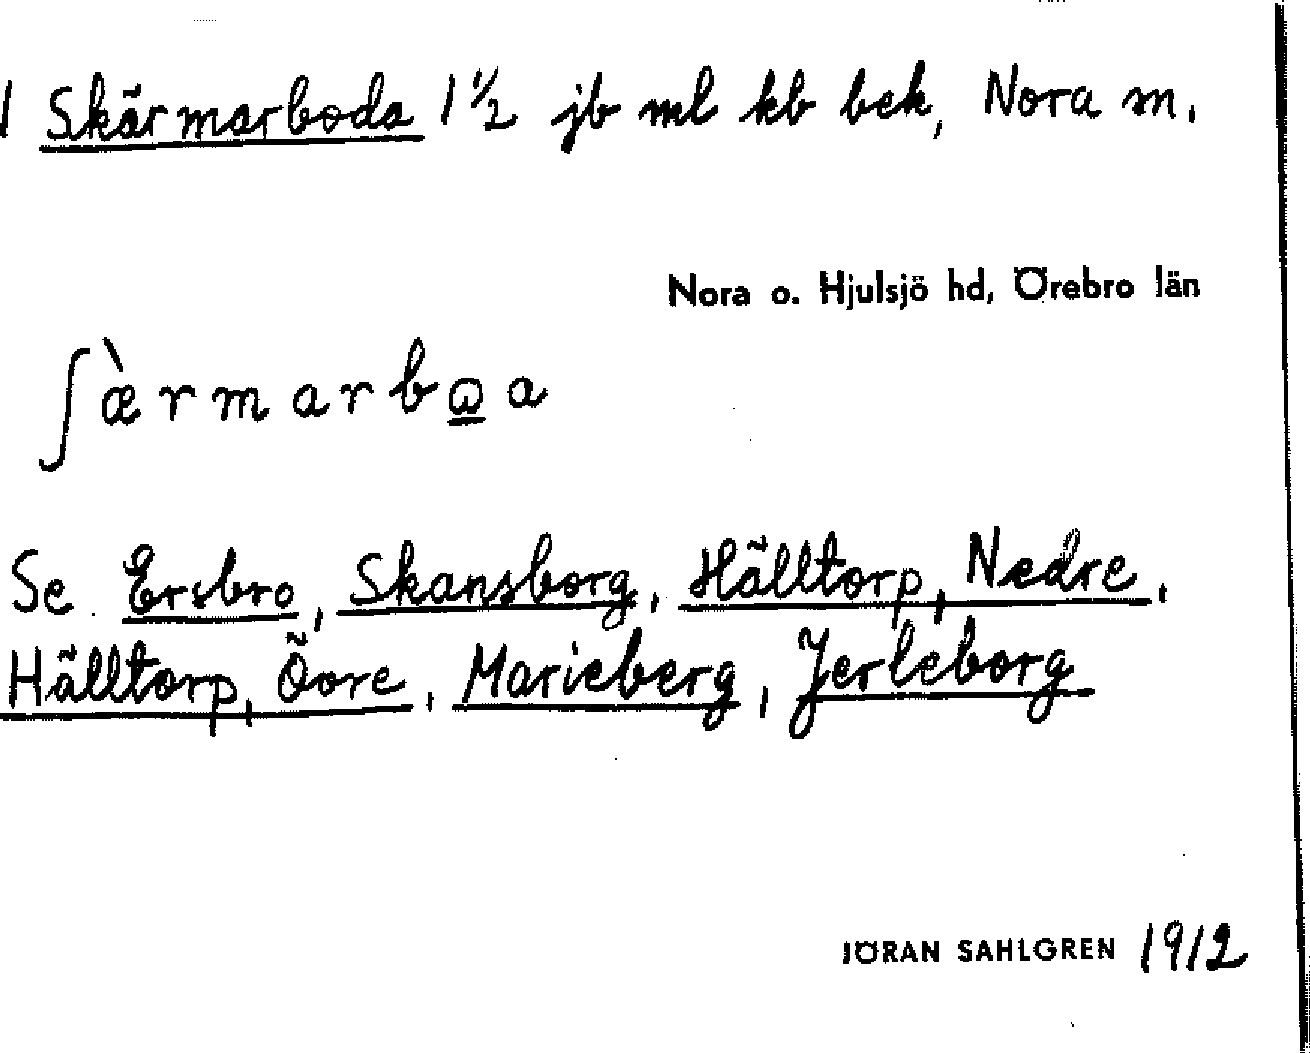 1 Skärmarboda 1 1/2 jb ml kb bek, Nora m.
Nora o. Hjulsjö hd, Örebro län
ʃæ̀rmarbω̲a
Se Ersbro, Skansborg, Hälltorp, Nedre,
Hälltorp, Övre, Marieberg, Jerleborg
JÖRAN SAHLGREN 1912